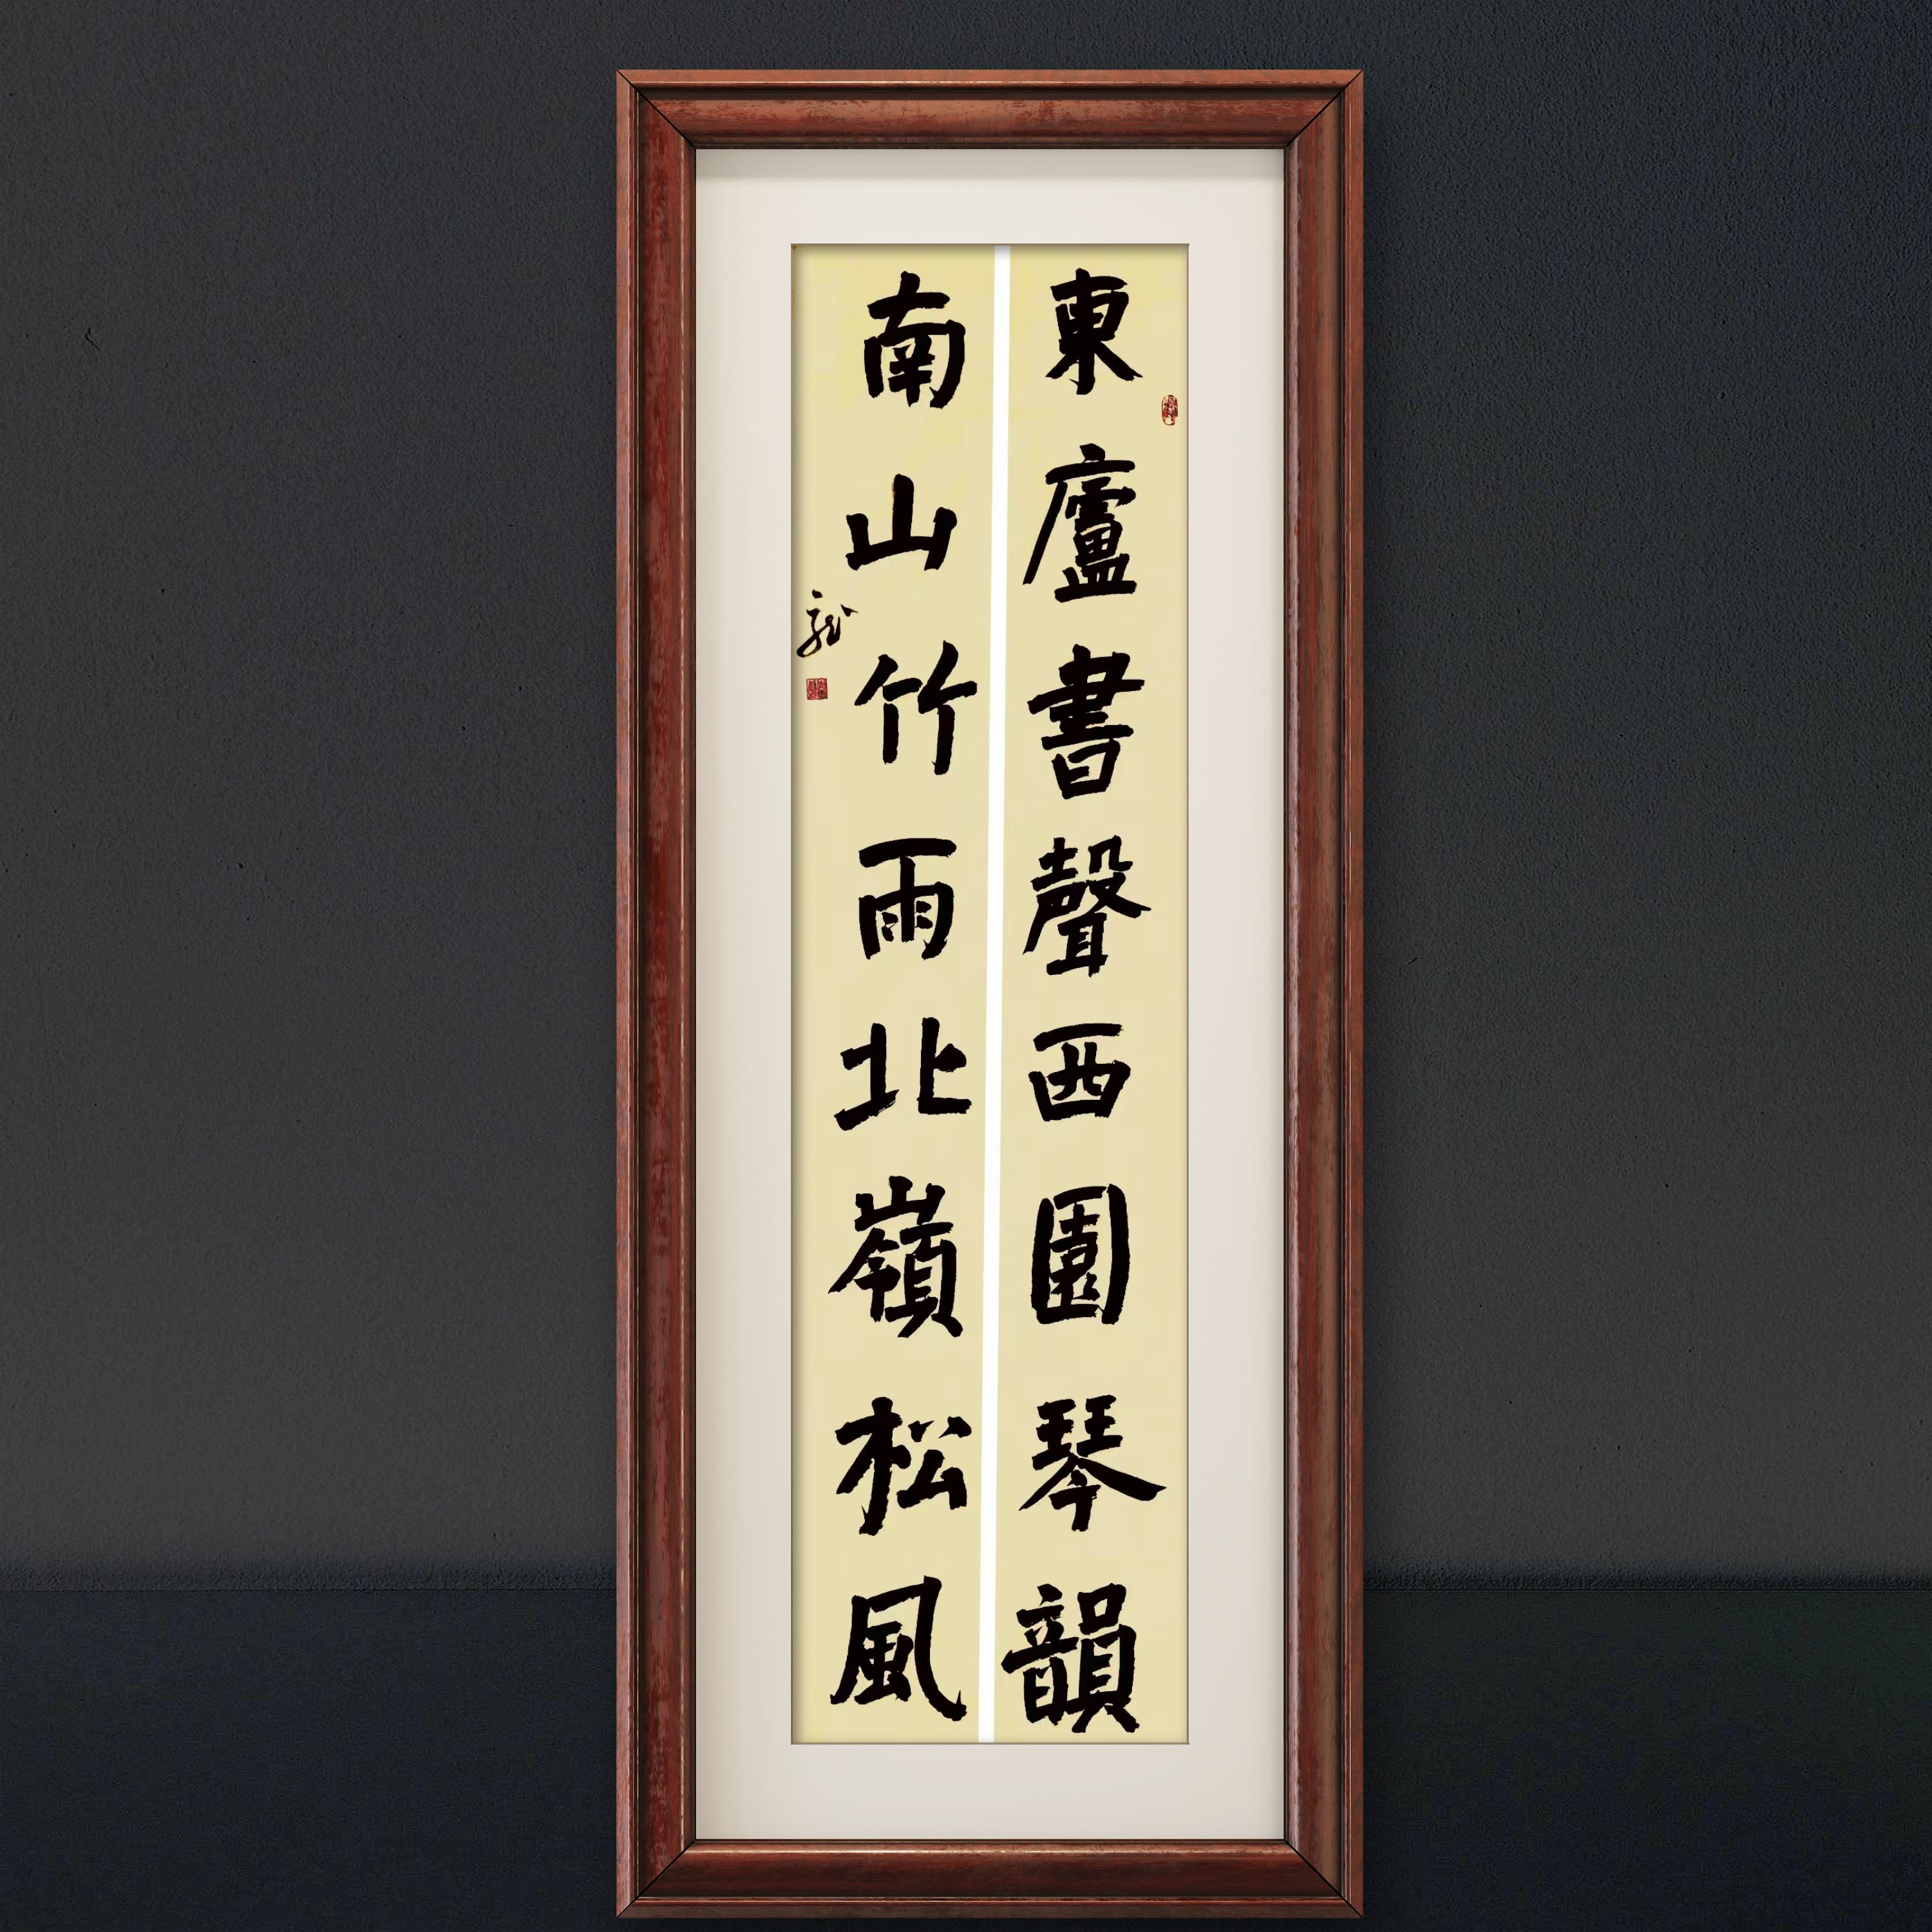 東廬書聲西園琴韻
南山竹雨北嶺松風